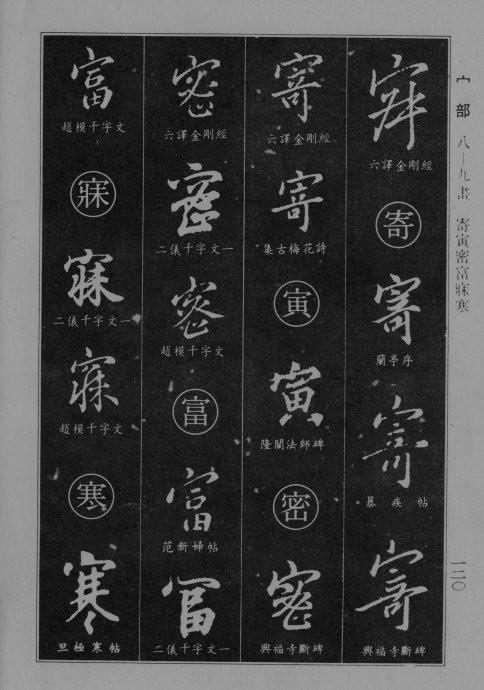 宀部 八—九畫 寄寅密富寐寒
一二〇
六譯金剛經
寄
寄
蘭亭序
寄
暴疾帖
寄
興福寺斷碑
寄
六譯金剛經
寄
集古梅花詩
寅
寅
隆闡法師碑
密
密
興福寺斷碑
密
六譯金剛經
密
二儀千字文一
密
趙模千字文
富
富
范新婦帖
富
二儀千字文一
富
趙模千字文
寐
寐
二儀千字文一
寐
趙模千字文
寒
寒
旦極寒帖